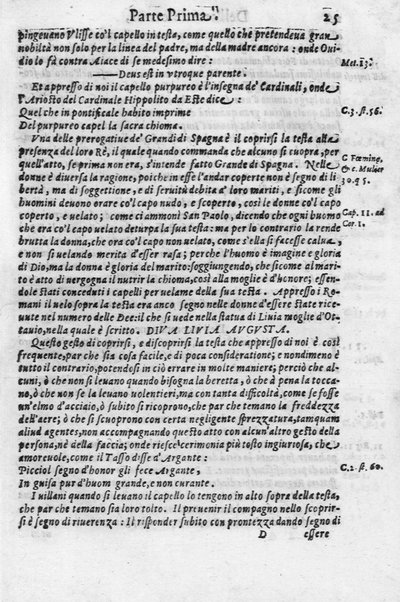 Parte Prima. 25
pingeuano Vlisse co'l capello in testa, come quello che pretendeua gran
nobiltà non solo per la linea del padre, ma della madre ancora : onde Oui-
dio lo fà contra Aiace di se medesimo dire : Met. 13.
——— Deus est in vtroque parente.
Et appresso di noi il capello purpureo è l'insegna de' Cardinali, onde
l'Ariosto del Cardinale Hippolito da Este dice :
Quel che in pontificale habito imprime C. 3. st. 56.
Del purpureo capel la sacra chioma.
Vna delle prerogatiue de' Grandi di Spagna è il coprirsi la testa alla
presenza del loro Rè, il quale quando commanda che alcuno si cuopra, per
quell'atto, se prima non era, s'intende fatto Grande di Spagna. Nelle
donne è diuersa la ragione, poiche in esse l'andar coperte non è segno di li-
bertà, ma di soggettione, e di seruitù debita a' loro mariti, e sicome gli
huomini deuono orare co'l capo nudo, e scoperto, così le donne co'l capo
coperto, e uelato; come ci ammonì San Paolo, dicendo che ogni huomo
che ora co'l capo uelato deturpa la sua testa: ma per lo contrario la rende
brutta la donna, che ora co'l capo non uelato, come s'ella si facesse calua,
e non si uelando merita d'esser rasa; perche l'huomo è imagine e gloria
di Dio, ma la donna è gloria del marito: soggiungendo, che sicome al mari-
to è atto di uergogna il nutrir la chioma, così alla moglie è d'honore; essen-
dole stati conceduti i capelli per uelame della sua testa. Appresso i Ro-
mani il uelo sopra la testa era anco segno nelle donne d'essere state rice-
uute nel numero delle Dee: il che si uede nella statua di Liuia moglie d'Ot-
tauio, nella quale è scritto. DIVA LIVIA AVGVSTA.
Questo gesto di coprirsi, e discoprirsi la testa che appresso di noi è così
frequente, par che sia cosa facile, e di poca consideratione; e nondimeno è
tutto il contrario, potendosi in ciò errare in molte maniere; perciò che al-
tuni, ò che non si leuano quando bisogna la beretta, ò che à pena la tocca-
no, ò che non se la leuano uolentieri, ma con tanta difficoltà, come se fosse
un'elmo d'acciaio, ò subito si ricoprono, che par che temano la freddezza
dell'aere; ò che si scuoprono con certa negligente sprezzatura, tamquam
aliud agentes, non accompagnando questo atto con alcun'altro gesto della
persona, nè della faccia; onde riesce cerimonia più tosto ingiuriosa, che
amoreuole, come il Tasso disse d'Argante :
Picciol segno d'honor gli fece Argante, C. 2. st. 60.
In guisa pur d'huom grande, e non curante.
I uillani quando si leuano il capello lo tengono in alto sopra della testa,
che par che temano sia loro tolto. Il preuenir il compagno nello scoprir-
si è segno di riuerenza : Il risponder subito con prontezza dando segno di
D essere